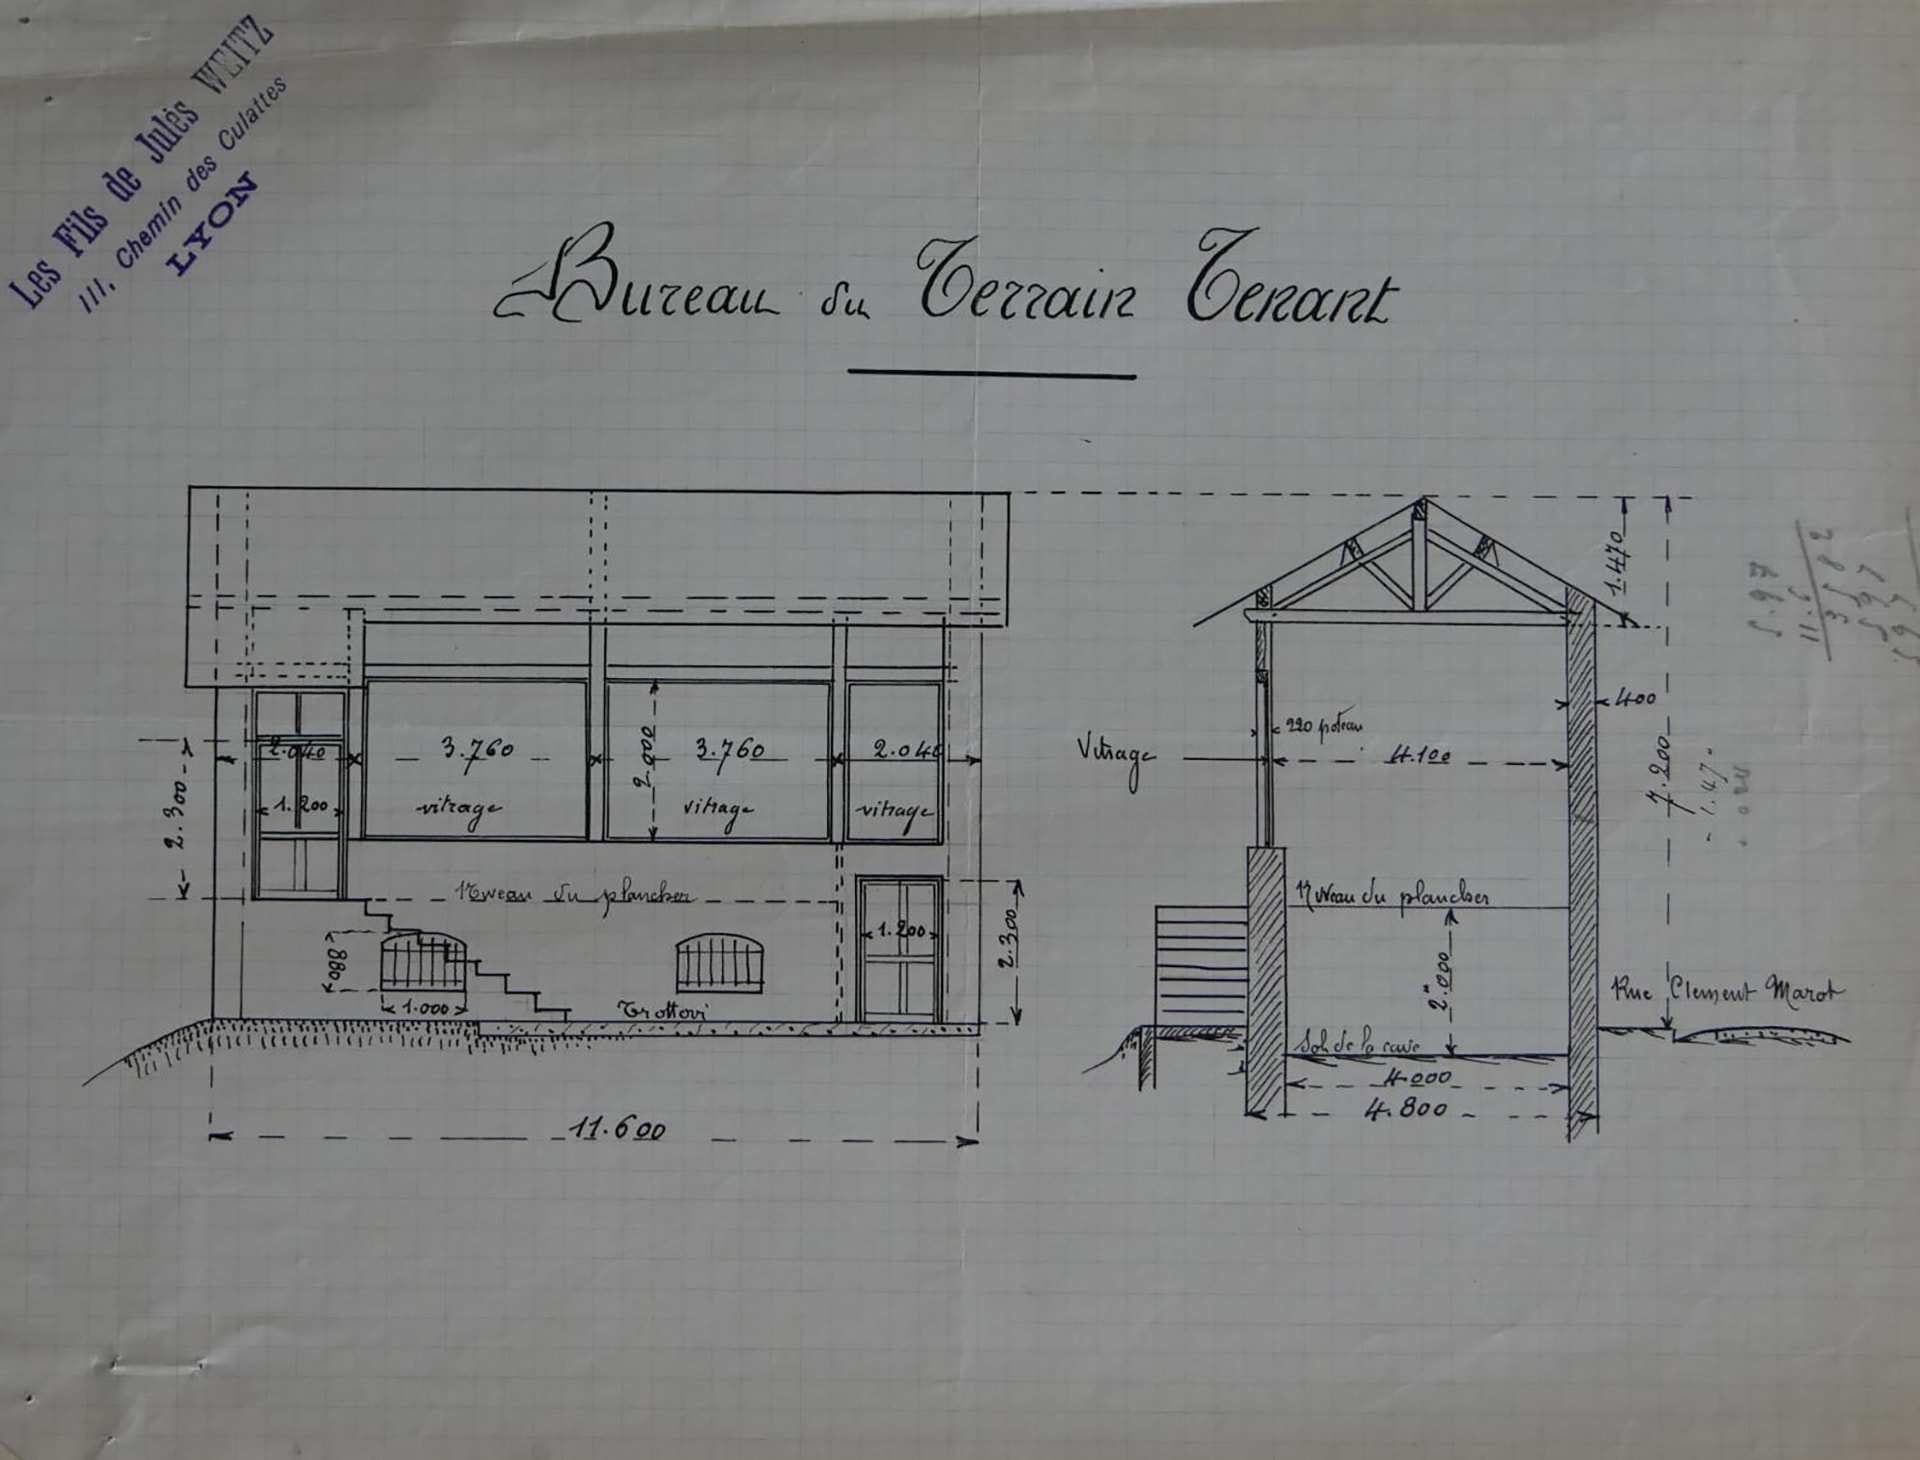 Les Fils de Jules WEITZ
111, Chemin des Culattes
LYON
Bureau du Terrain Tenant
2.040
3.760
3.760
2.040
2.000
2.300
1.200
vitrage
vitrage
vitrage
Niveau du plancher
880
1.000
Trottoi
1.200
2.300
11.600
1.470
400
220 poteau
Vitrage
4.100
7.200
1.47
Niveau du plancher
2m000
Sol de la cave
Rue Clement Marot
4.000
4.800
5.97
11.6
3582
597